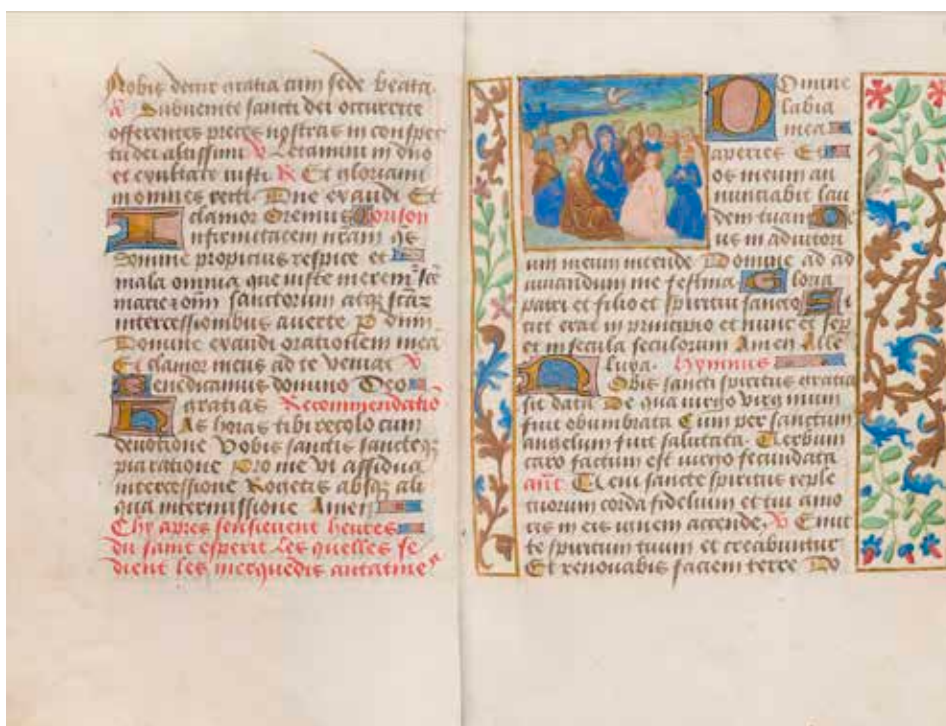 Nobis detur gratia cum sede beata.
R Subuenite sancti dei occurrite
offerentes preces nostras in conspec
tu dei altissimi V Letamini in dno
et exultate iusti R Et gloriami
ni omnes recti Dne exaudi Et
clamor Oremus Orison
Infirmitatem nram qs
Domine propicius respice et
mala omnia que iuste meremr sce
marie z omi sanctorum atqz scaz
intercessionibus auerte P dnm
Domine exaudi orationem mea
Et clamor meus ad te veniat V
Benedicamus domino Deo
gratias Recommendatio
Has horas tibi recolo cum
deuotione Vobis sanctis sancteqz
pia ratione Pro me vt assidua
intercessione Rogetis absqz ali
qua intermissione Amen
Chy apres sensieuent heures
du saint esperit Les quelles se
dient les merquedis au tatine
Domine
labia
mea
aperies Et
os meum an
nuntiabit lau
dem tuam De
us in adiutori
um meum intende Domine ad ad
iuuandum me festina Gloria
patri et filio et spiritui sancto Si
cut erat in principio et nunc et sep
et in secula seculorum Amen Alle
luya. Hymnus
Nobis sancti spiritus gratia
sit data De qua uirgo virginum
fuit obumbrata Cum per sanctum
angelum fuit salutata. Verbum
caro factum est uirgo fecundata
ant. Veni sancte spiritus reple
tuorum corda fidelium et tui amo
ris in eis ignem accende. V Emit
te spiritum tuum et creabuntur
Et renouabis faciem terre Do